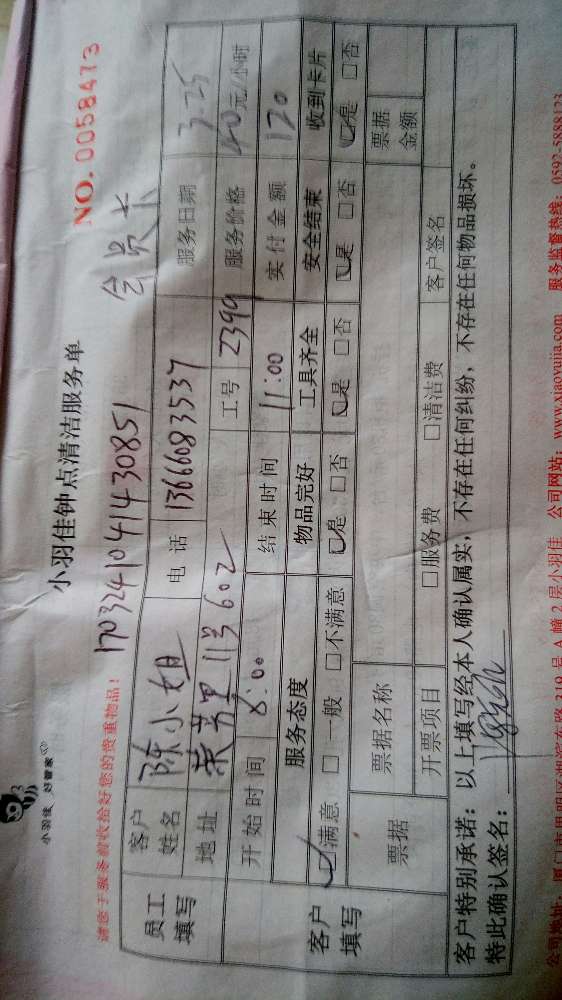 小羽佳 好管家
小羽佳钟点清洁服务单
NO. 0058473
请您于服务前收拾好您的贵重物品！
1703241041430851 会员卡
员工填写
客户姓名 陈小姐 电话 13666083537 服务日期 3.25
地址 荣芳里11号602 工号 2399 服务价格 40元/小时
开始时间 8:00 结束时间 11:00 实付金额 120
客户填写
服务态度 物品完好 工具齐全 安全结束 收到卡片
☑满意 □一般 □不满意 ☑是 □否 ☑是 □否 ☑是 □否 ☑是 □否
票据 票据名称 票据金额
开票项目 □服务费 □清洁费 客户签名
客户特别承诺：以上填写经本人确认属实，不存在任何纠纷，不存在任何物品损坏。
特此确认签名：
公司地址：厦门市思明区湖滨东路319号A幢2层小羽佳 公司网站：www.xiaoyujia.com 服务监督热线：0592-5888123